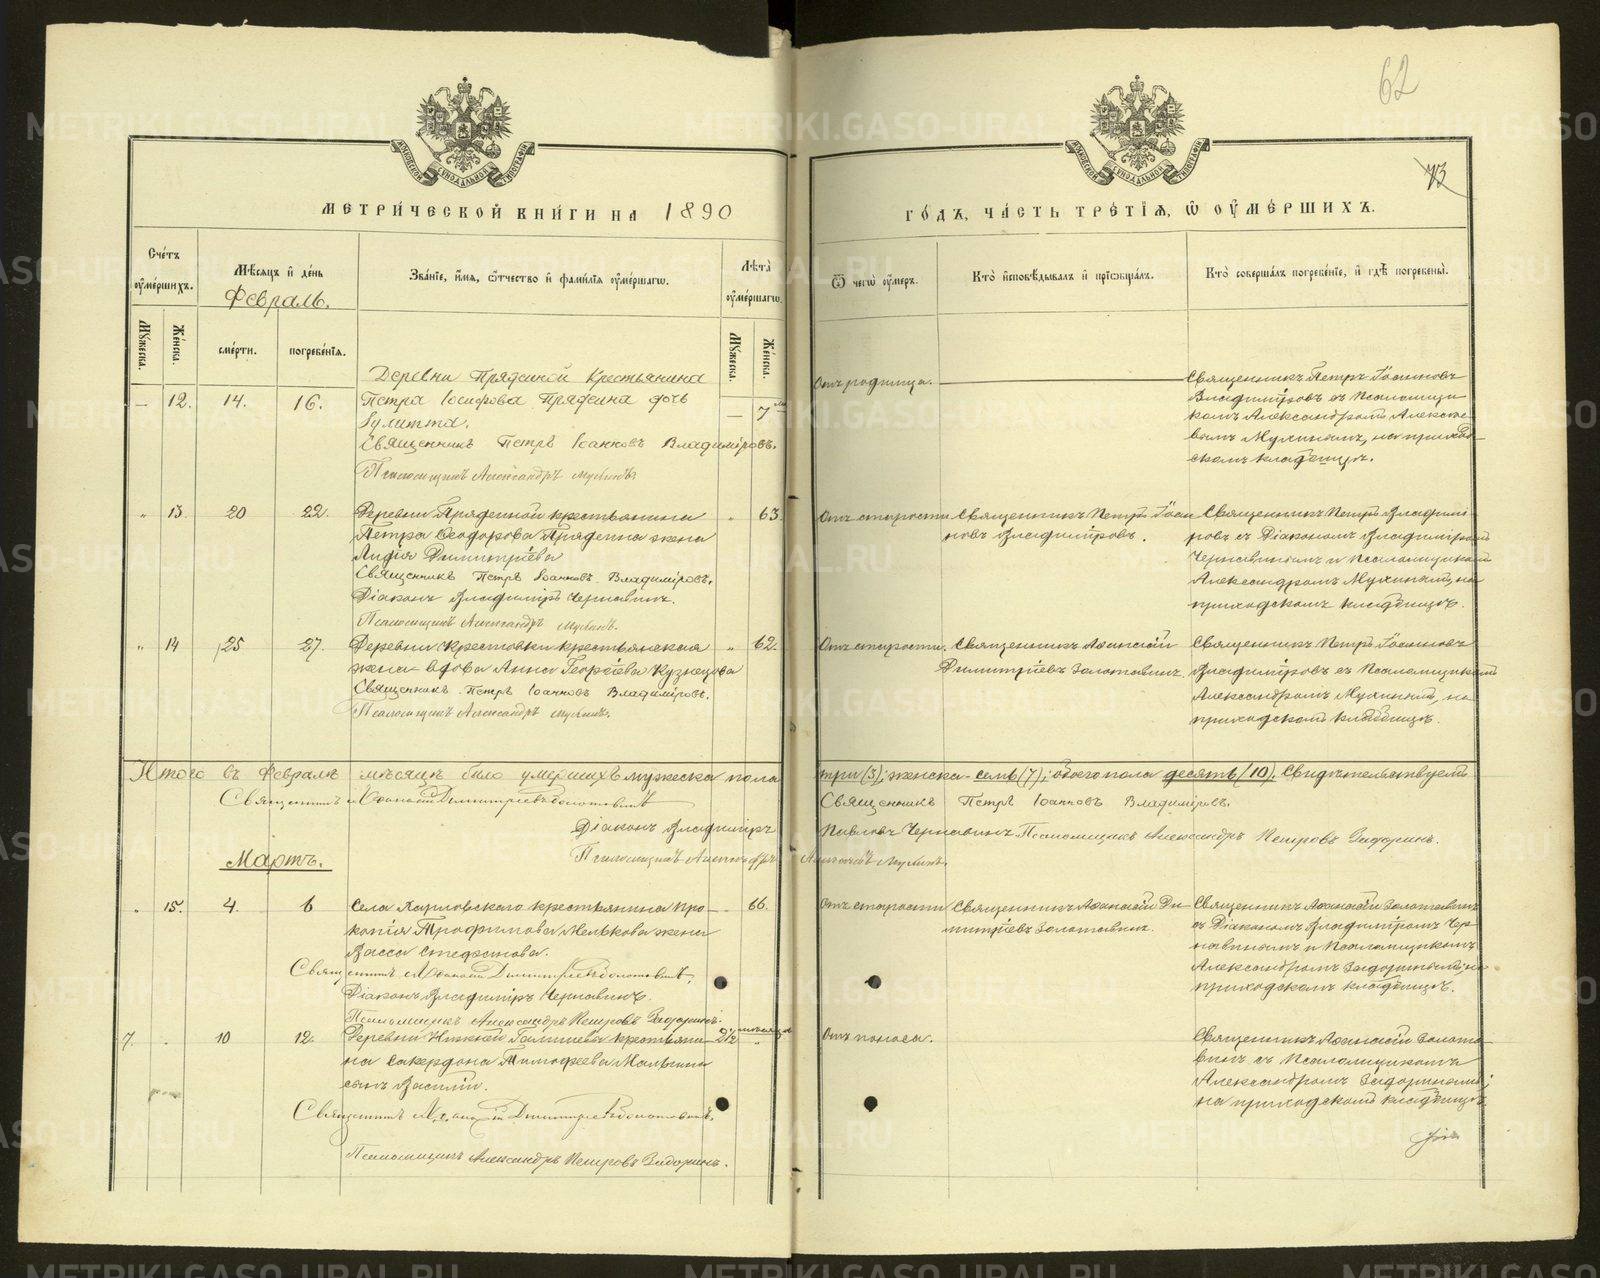 62
73
МЕТРИ́ЧЕСКОЙ КНИ́ГИ НА 1890
ГО́ДЪ, ЧА́СТЬ ТРЕ́ТІѦ, Ѡ ОУ҆МЕ́РШИХЪ.
Сче́тъ оу҆ме́ршихъ.
Мѣ́сяцъ и҆ де́нь
Февраль.
Зва́нїе, и҆́мѧ, ѻ҆́тчество и҆ фами́лїѧ оу҆ме́ршагѡ.
Лѣ́та̀ оу҆ме́ршагѡ.
Ѿ чегѡ̀ оу҆́меръ.
Кто̀ и҆сповѣ́дывалъ и҆ прїѡбща́лъ.
Кто̀ соверша́лъ погребе́нїе, и҆ гдѣ̀ погребены̀.
Мꙋ́жеска.
Же́нска.
сме́рти.
погребе́нїѧ.
Мꙋ́жеска.
Же́нска.
Деревни Прядеиной Крестьянина
— 12. 14. 16. Петра Іосифова Прядеина дочь — 7
Іулитта.
Священникъ Петръ Іоанновъ Владиміровъ.
Псаломщикъ Александръ Мухинъ.
Отъ родимца.
Священникъ Петръ Іоанновъ
Владиміровъ съ Псаломщи-
комъ Александромъ Алексѣе-
вымъ Мухинымъ, на приход-
скомъ кладбищѣ.
" 13. 20 22. Деревни Прядеиной крестьянина " 63.
Петра Ѳеодорова Прядеина жена
Лидія Димитріева
Священникъ Петръ Іоанновъ Владиміровъ.
Діаконъ Владиміръ Чернавинъ.
Псаломщикъ Александръ Мухинъ.
Отъ старости
Священникъ Петръ Іоан-
новъ Владиміровъ.
Священникъ Петръ Владимі-
ровъ съ Діакономъ Владиміромъ
Чернавинымъ и Псаломщикомъ
Александромъ Мухинымъ, на
приходскомъ кладбищѣ.
" 14 25 27. Деревни Крестовки крестьянская " 62.
жена-вдова Анна Георгіева Кузнецова
Священникъ Петръ Іоанновъ Владиміровъ.
Псаломщикъ Александръ Мухинъ.
Отъ старости.
Священникъ Аѳанасій
Димитріевъ Золотавинъ.
Священникъ Петръ Іоанновъ
Владиміровъ съ Псаломщикомъ
Александромъ Мухинымъ, на
приходскомъ кладбищѣ.
Итого въ Февралѣ мѣсяцѣ было умершихъ мужеска пола три (3); женска - семь (7); обоего пола десять (10). Свидѣтельствуемъ
Священникъ Аѳанасій Димитріевъ Золотавинъ
Священникъ Петръ Іоанновъ Владиміровъ.
Діаконъ Владиміръ Павловъ Чернавинъ Псаломщикъ Александръ Петровъ Задоринъ.
Псаломщикъ Александръ Алексѣевъ Мухинъ.
Мартъ.
" 15. 4. 6 Села Харловскаго крестьянина Про- 66.
копія Трофимова Мелькова жена
Васса Стефанова.
Священникъ Аѳанасій Димитріевъ Золотавинъ,
Діаконъ Владиміръ Чернавинъ.
Псаломщикъ Александръ Петровъ Задоринъ.
Отъ старости
Священникъ Аѳанасій Ди-
митріевъ Золотавинъ.
Священникъ Аѳанасій Золотавинъ
съ Діакономъ Владиміромъ Чер-
навинымъ и Псаломщикомъ
Александромъ Задоринымъ, на
приходскомъ кладбищѣ.
7. " 10 12. Деревни Нижней Галишевы крестьяни- 2½ мѣсяца "
на Сакердона Тимоѳеева Мальгина
сынъ Василій.
Священникъ Аѳанасій Димитріевъ Золотавинъ.
Псаломщикъ Александръ Петровъ Задоринъ.
Отъ поноса.
Священникъ Аѳанасій Золота-
винъ съ Псаломщикомъ
Александромъ Задоринымъ,
на приходскомъ кладбищѣ.
METRIKI.GASO-URAL.RU